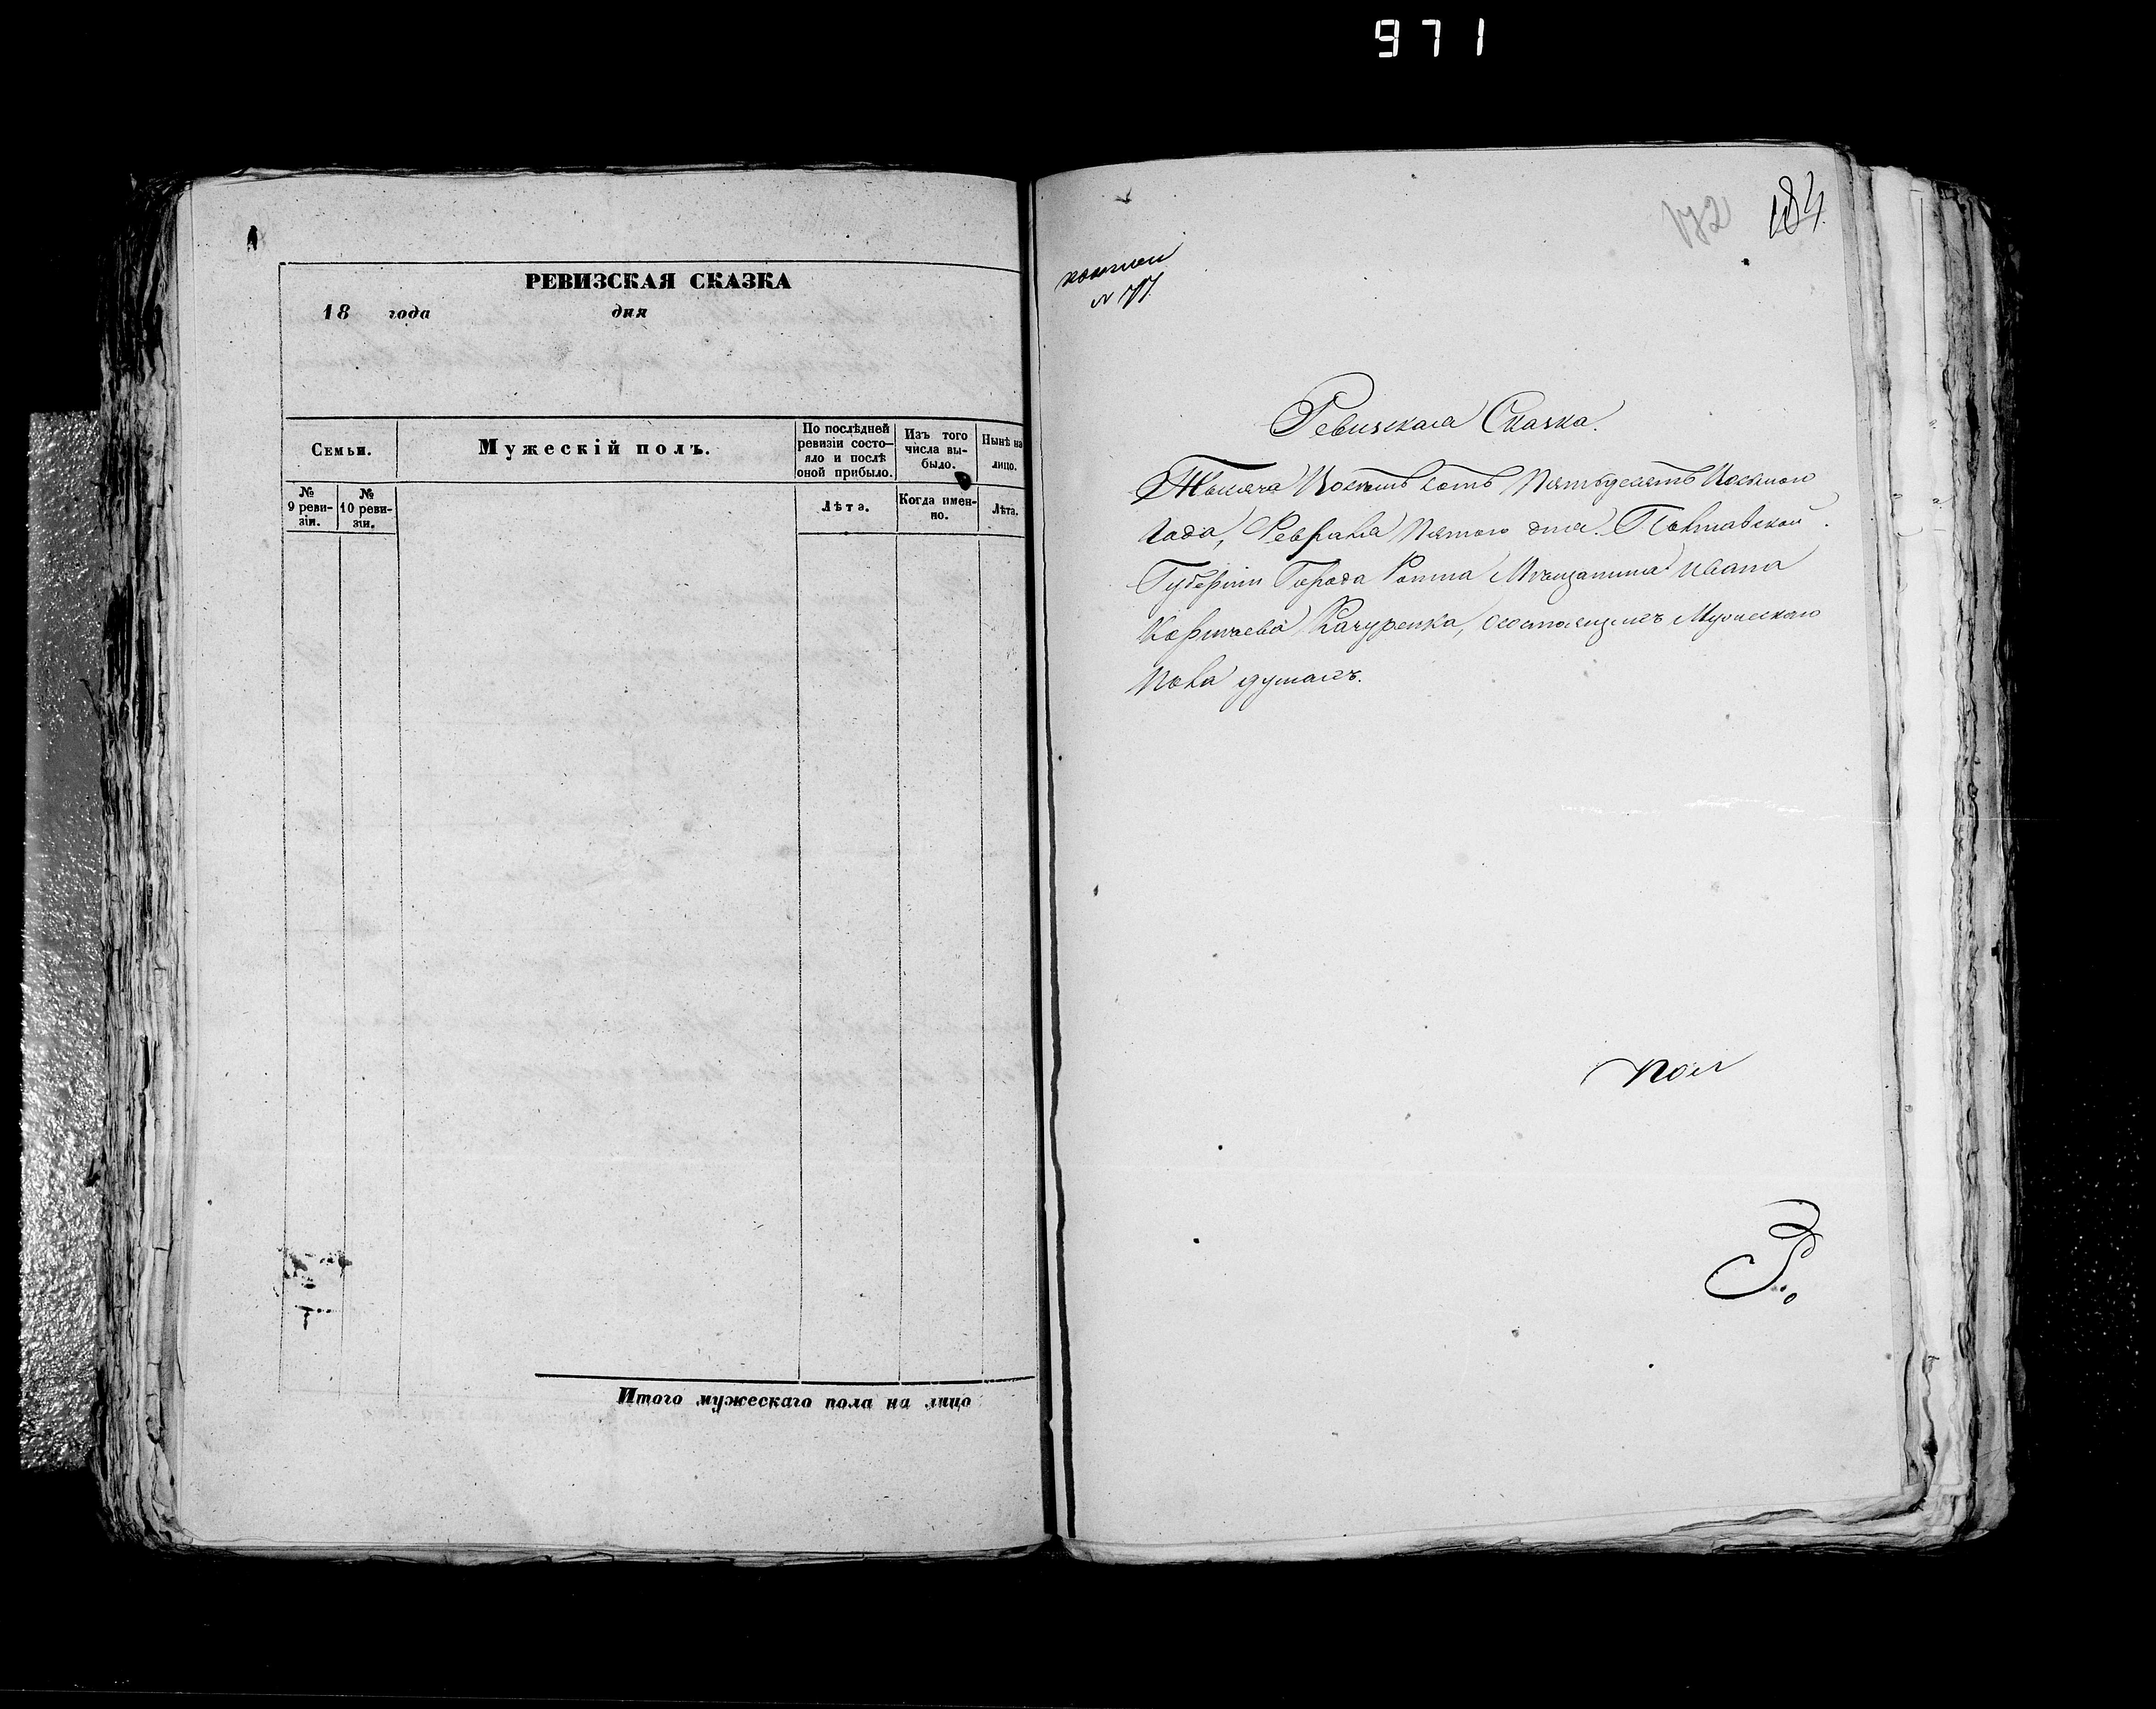 971
РЕВИЗСКАЯ СКАЗКА
18 года дня
Семьи.
Мужескій полъ.
По послѣдней ревизіи состо-яло и послѣ оной прибыло.
Изъ того числа вы-было.
Нынѣ на лицо.
№ 9 реви-зіи.
№ 10 реви-зіи.
Лѣта.
Когда имен-но.
Лѣта.
Итого мужескаго пола на лицо
172 184
Ревизская Сказка.
Тысяча Восемь сотъ Пятьдесятъ Восьмого
Года, Февраля Пятого дня. Полтавской
Губерніи Города Ромна Мѣщанина Ивана
Качуренка, состоящимъ Мужескаго
Пола душамъ.